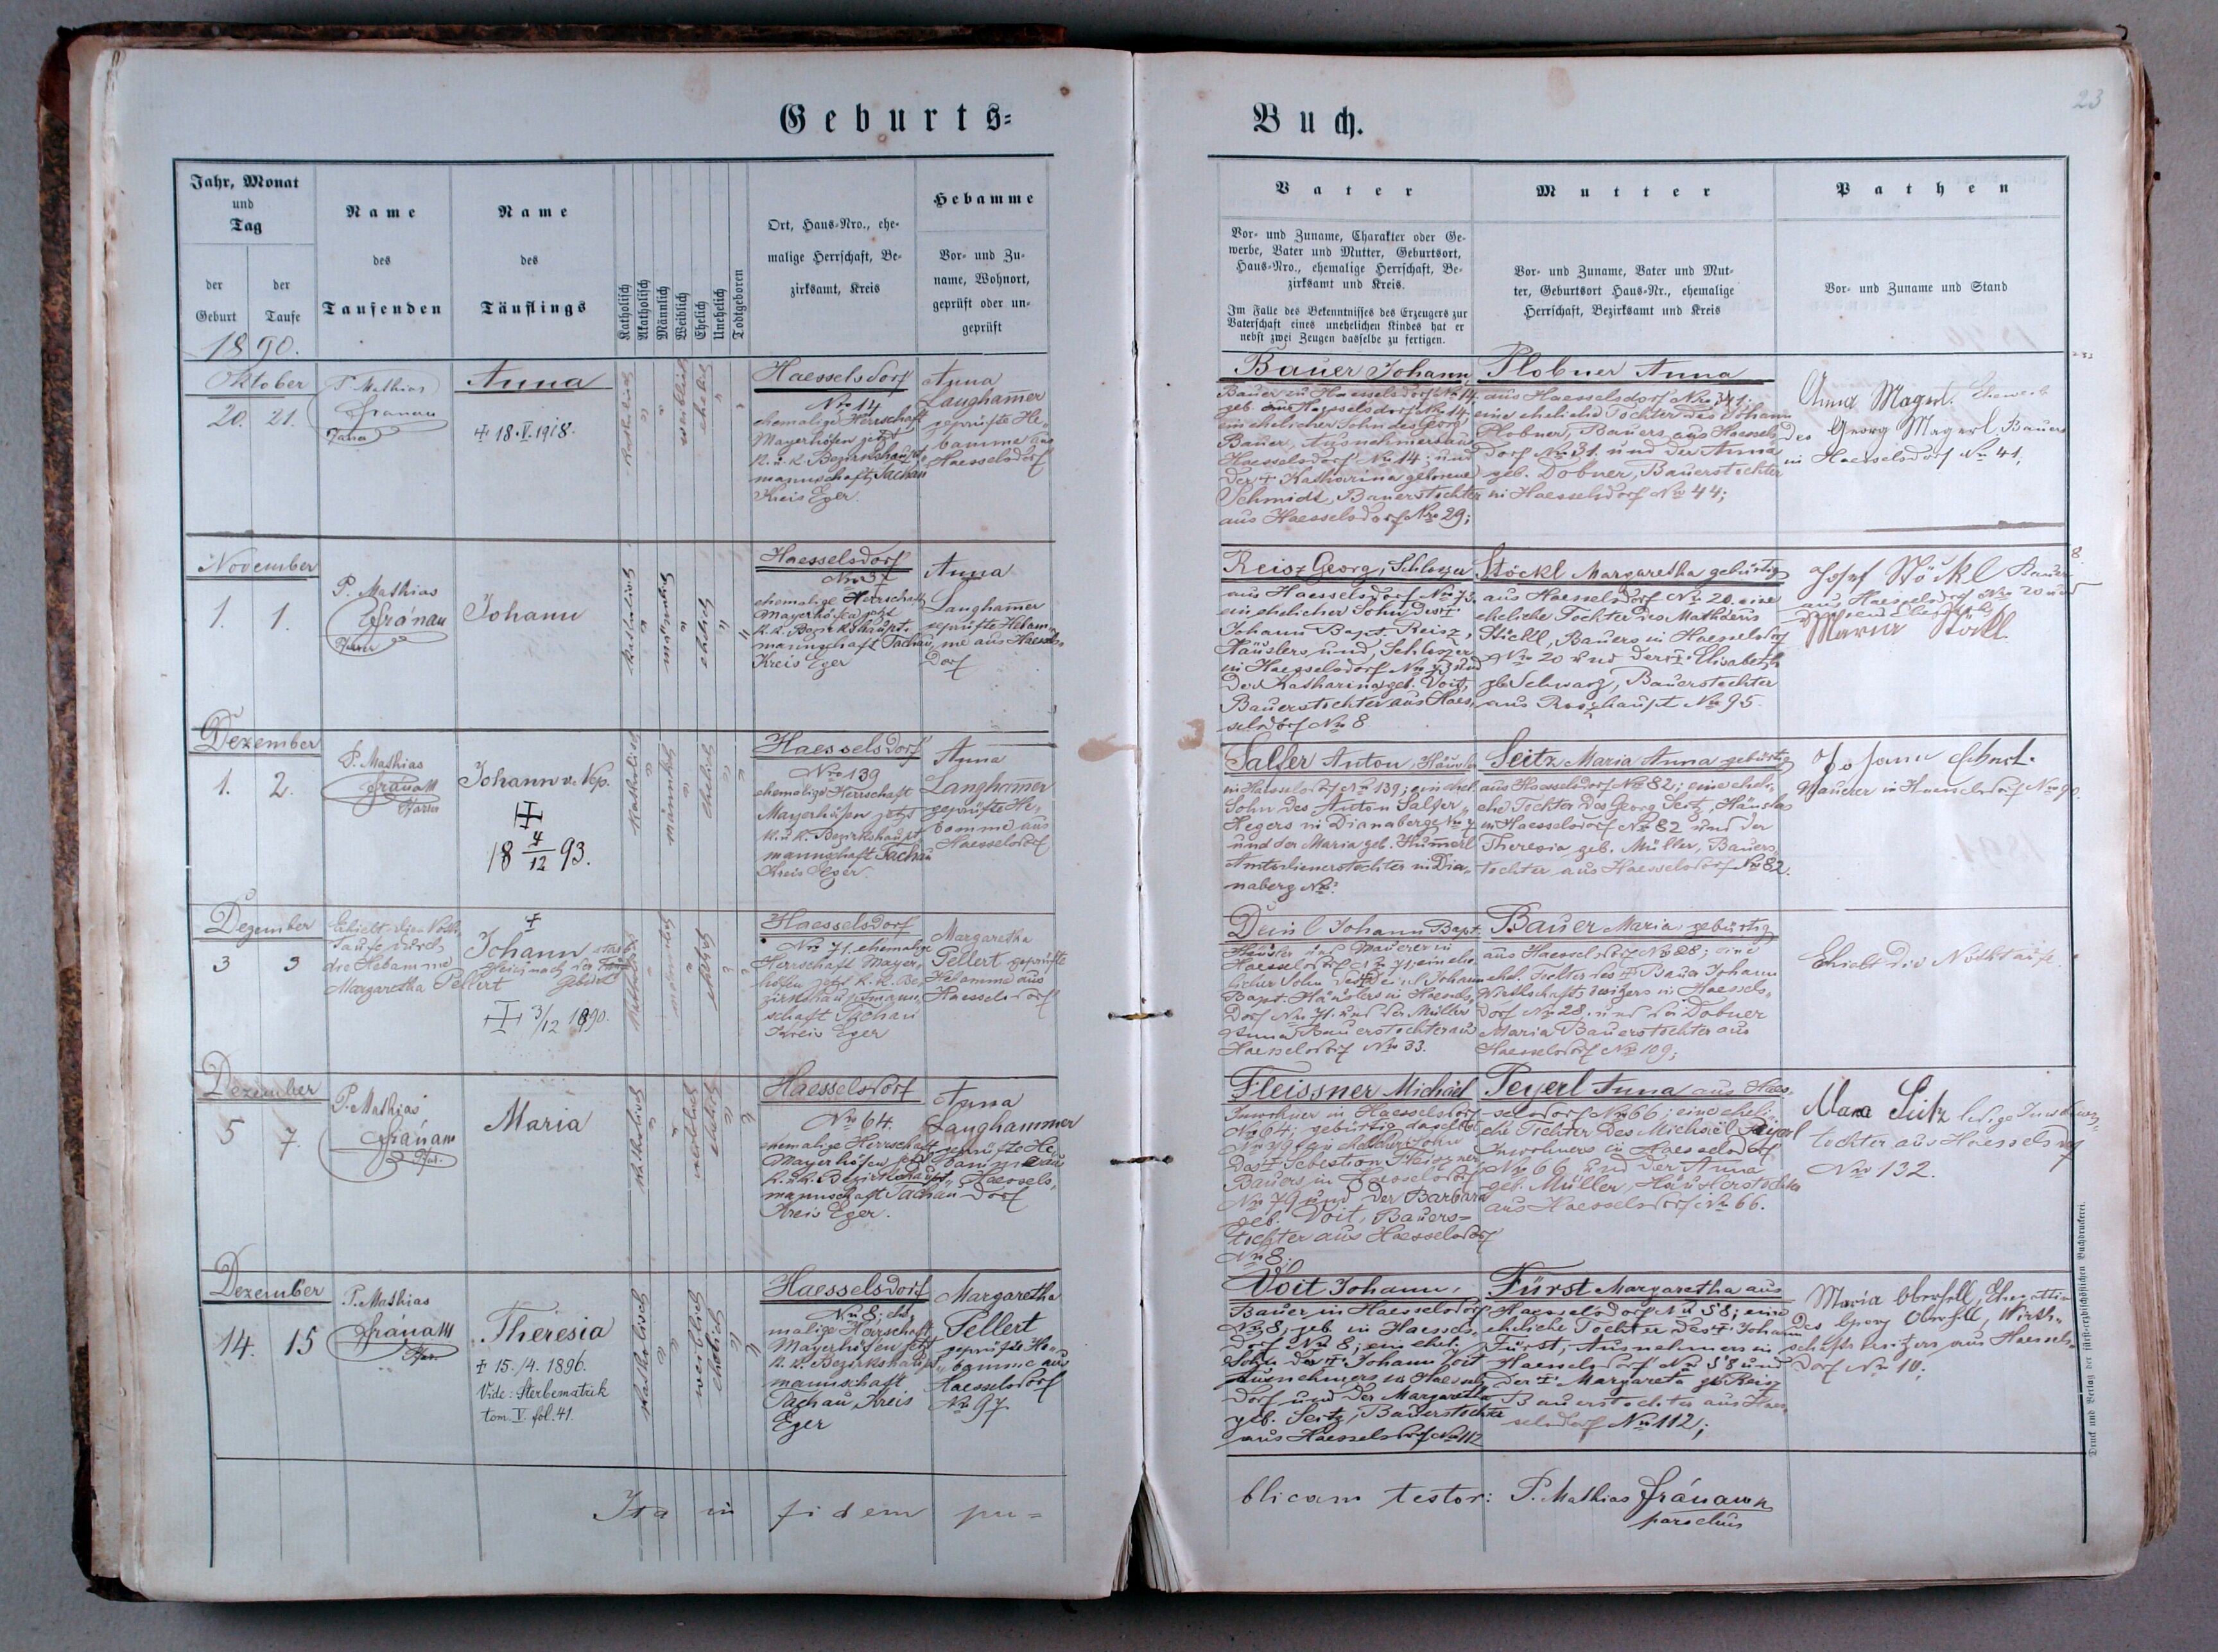 Geburts-
Buch.
23
Jahr, Monat
und
Tag
der
Geburt
der
Taufe
1890.
Name
des
Taufenden
Name
des
Täuflings
Katholisch
Akatholisch
Männlich
Weiblich
Ehelich
Unehelich
Todtgeboren
Ort, Haus-Nro., ehe-
malige Herrschaft, Be-
zirksamt, Kreis
Hebamme
Vor- und Zu-
name, Wohnort,
geprüft oder un-
geprüft
Vater
Vor- und Zuname, Charakter oder Ge-
werbe, Vater und Mutter, Geburtsort,
Haus-Nro., ehemalige Herrschaft, Be-
zirksamt und Kreis.
Im Falle des Bekenntnisses des Erzeugers zur
Vaterschaft eines unehelichen Kindes hat er
nebst zwei Zeugen dasselbe zu fertigen.
Mutter
Vor- und Zuname, Vater und Mut-
ter, Geburtsort Haus-Nr., ehemalige
Herrschaft, Bezirksamt und Kreis
Pathen
Vor- und Zuname und Stand
Oktober
20. 21.
P. Mathias
Anna
+ 18.V.1918.
katholisch
weiblich
ehelich
Haesselsdorf
Nro 14
ehemalige Herrschaft
Mayerhöfen jetzt
k. u. k. Bezirkshaupt-
mannschaft Tachau
Kreis Eger.
Anna
Langhamer
geprüfte He-
bamme aus
Haesselsdorf
Bauer Johann,
Bauer zu Haesselsdorf No 14,
geb. aus Haesselsdorf No 14
ein ehelicher Sohn des Georg
Bauer, Ausnehmers aus
Haesselsdorf No 14; und
der + Katharina geborene
Schmidt, Bauerstochter
aus Haesselsdorf No 29;
Plobner Anna
aus Haesselsdorf Nro 31;
eine eheliche Tochter des Johann
Plobner, Bauers aus Haessels-
dorf No 31. und der Anna
geb. Dobner, Bauerstochter
in Haesselsdorf No 44;
Anna Magerl. Eheweib
des Georg Magerl Bauers
in Haesselsdorf No 41,
November
1. 1.
P. Mathias
Fránam
Johann
katholisch
männlich
ehelich
Haesselsdorf
ehemalige Herrschaft
Mayerhöfen jetzt
k. k. Bezirkshaupt-
mannschaft Tachau,
Kreis Eger
Anna
Langhamer
geprüfte Hebam-
me aus Haessels-
dorf
Reisz Georg, Schlosser
aus Haesselsdorf No 73.
ein ehelicher Sohn des +
Johann Bapt. Reisz,
Häuslers und Schlosser
in Haesselsdorf No 73 und
der Katharina geb. Voit,
Bauerstochter aus Haes-
selsdorf No 8
Stöckl Margaretha gebürtig
aus Haesselsdorf No 20. eine
eheliche Tochter des Mathäus
Stöckl, Bauers in Haesselsdorf
No 20 und der + Elisabeth
geb. Schwarz, Bauerstochter
aus Roszhaupt No 95.
8.
Josef Stöckl Bauer
aus Haesselsdorf No 20 und
Maria Stöckl
Dezember
1. 2.
P. Mathias
Fránam
Pfarrer
Johann v. Nep.
18 4/12 93.
katholisch
männlich
ehelich
Haesselsdorf
Nro 139
ehemalige Herrschaft
Mayerhöfen jetzt
k. u. k. Bezirkshaupt-
mannschaft Tachau
Kreis Eger.
Anna
Langhamer
geprüfte He-
bamme aus
Haesselsdorf
Salfer Anton, Häusler
in Haesselsdorf No 139; ein ehel.
Sohn des Anton Salfer,
Hegers in Dianaberg No 7
und der Maria geb. Hümerl
Amtsdienerstochter in Dia-
naberg No.
Seitz Maria Anna gebürtig
aus Haesselsdorf No 82; eine ehel-
che Tochter des Georg Seitz, Häuslers
in Haesselsdorf No 82 und der
Theresia geb. Müller, Bauers-
tochter aus Haesselsdorf No 82.
Johann
Maurer in Haesselsdorf No 90.
Dezember
3 3
Erhielt die Noth-
taufe durch
die Hebamme
Margaretha Pellert
+
Johann starb
gleich nach der
Geburt
3/12 1890.
katholisch
männlich
ehelich
Haesselsdorf
No 71. ehemalige
Herrschaft Mayer-
höfen jetzt k. k. Be-
zirkshauptmann-
schaft Tachau
Kreis Eger
Margaretha
Pellert geprüfte
Hebamme aus
Haesselsdorf
Deinl Johann Bapt.
Häusler und Maurer in
Haesselsdorf No 71, ein ehe-
licher Sohn des + Deinl Johann
Bapt. Häuslers in Haessels-
dorf No 71. und der Müller
Anna Bauerstochter aus
Haesselsdorf No 33.
Bauer Maria gebürtig
aus Haesselsdorf No 28; eine
ehel. Tochter des + Bauer Johann
Wirthschaftsbesitzers in Haessels-
dorf No 28. und der Dobner
Maria Bauerstochter aus
Haesselsdorf No 109;
Erhielt die Nothtaufe.
Dezember
5 7.
P. Mathias
Fránam
Pfar.
Maria
katholisch
weiblich
ehelich
Haesselsdorf
No 64.
ehemalige Herrschaft
Mayerhöfen jetzt
k. u. k. Bezirkshaupt-
mannschaft Tachau
Kreis Eger.
Anna
Langhammer
geprüfte He-
bamme aus
Haessels-
dorf
Fleissner Michael
Inwohner in Haesselsdorf
No 64; gebürtig daselbst
No 79 ein ehelicher Sohn
des + Sebastian Fleiszner
Bauers in Haesselsdorf
No 79 und der Barbara
geb. Voit, Bauers-
tochter aus Haesselsdorf
No 8.
Peyerl Anna aus Haes-
selsdorf No 66; eine eheli-
che Tochter des Michael Peyerl
Inwohners in Haesselsdorf
No 66 und der Anna
geb. Müller, Häuslerstochter
aus Haesselsdorf No 66.
Maria Seitz ledige Inwohners-
tochter aus Haesselsdorf
No 132.
Dezember
14. 15
P. Mathias
Fránam
Pfar.
Theresia
+ 15./4. 1896.
Vide: Sterbematrik
tom. V. fol. 41.
katholisch
weiblich
ehelich
Haesselsdorf
No 8; ehe-
malige Herrschaft
Mayerhöfen jetzt
k. k. Bezirkshaupt-
mannschaft
Tachau, Kreis
Eger
Margaretha
Pellert
geprüfte He-
bamme aus
Haesselsdorf
No 97
Voit Johann,
Bauer in Haesselsdorf
No 8, geb. in Haessels-
dorf No 8; ein ehel.
Sohn des + Johann Voit
Ausnehmers in Haessels-
dorf und der Margaretha
geb. Seitz, Bauerstochter
aus Haesselsdorf No 112
Fürst Margaretha aus
Haesselsdorf No 58; eine
eheliche Tochter des + Johann
Fürst, Ausnehmers in
Haesselsdorf No 58 und
der + Margareta geb. Reisz
Bauerstochter aus Haes-
selsdorf No 112;
Maria Oberfell, Ehegattin
des Georg Oberfell, Wirth-
schaftsbesitzers aus Haessels-
dorf No 10;
Ita in fidem pu-
blicam testor: P. Mathias Fránam
parochus
Druck und Verlag der fürst-erzbischöflichen Buchdruckerei.